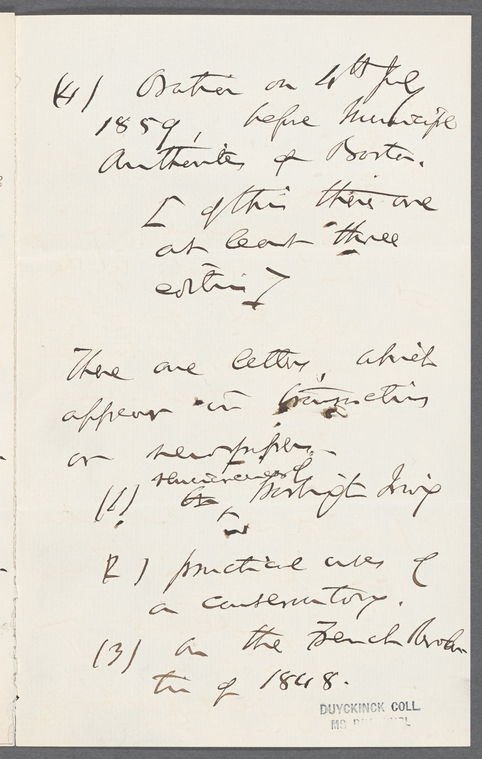 (4) Oration on 4th July
1859, before Municipal
Authorities of Boston.
[ of this there are
at least three
editions ]
There are letters, which
appear in
or newspapers.
(1) reminiscences of Washington Irving
(2) practical uses of
a conservatory.
(3) on the French Revolu
tion of 1848.
DUYCKINCK COLL.